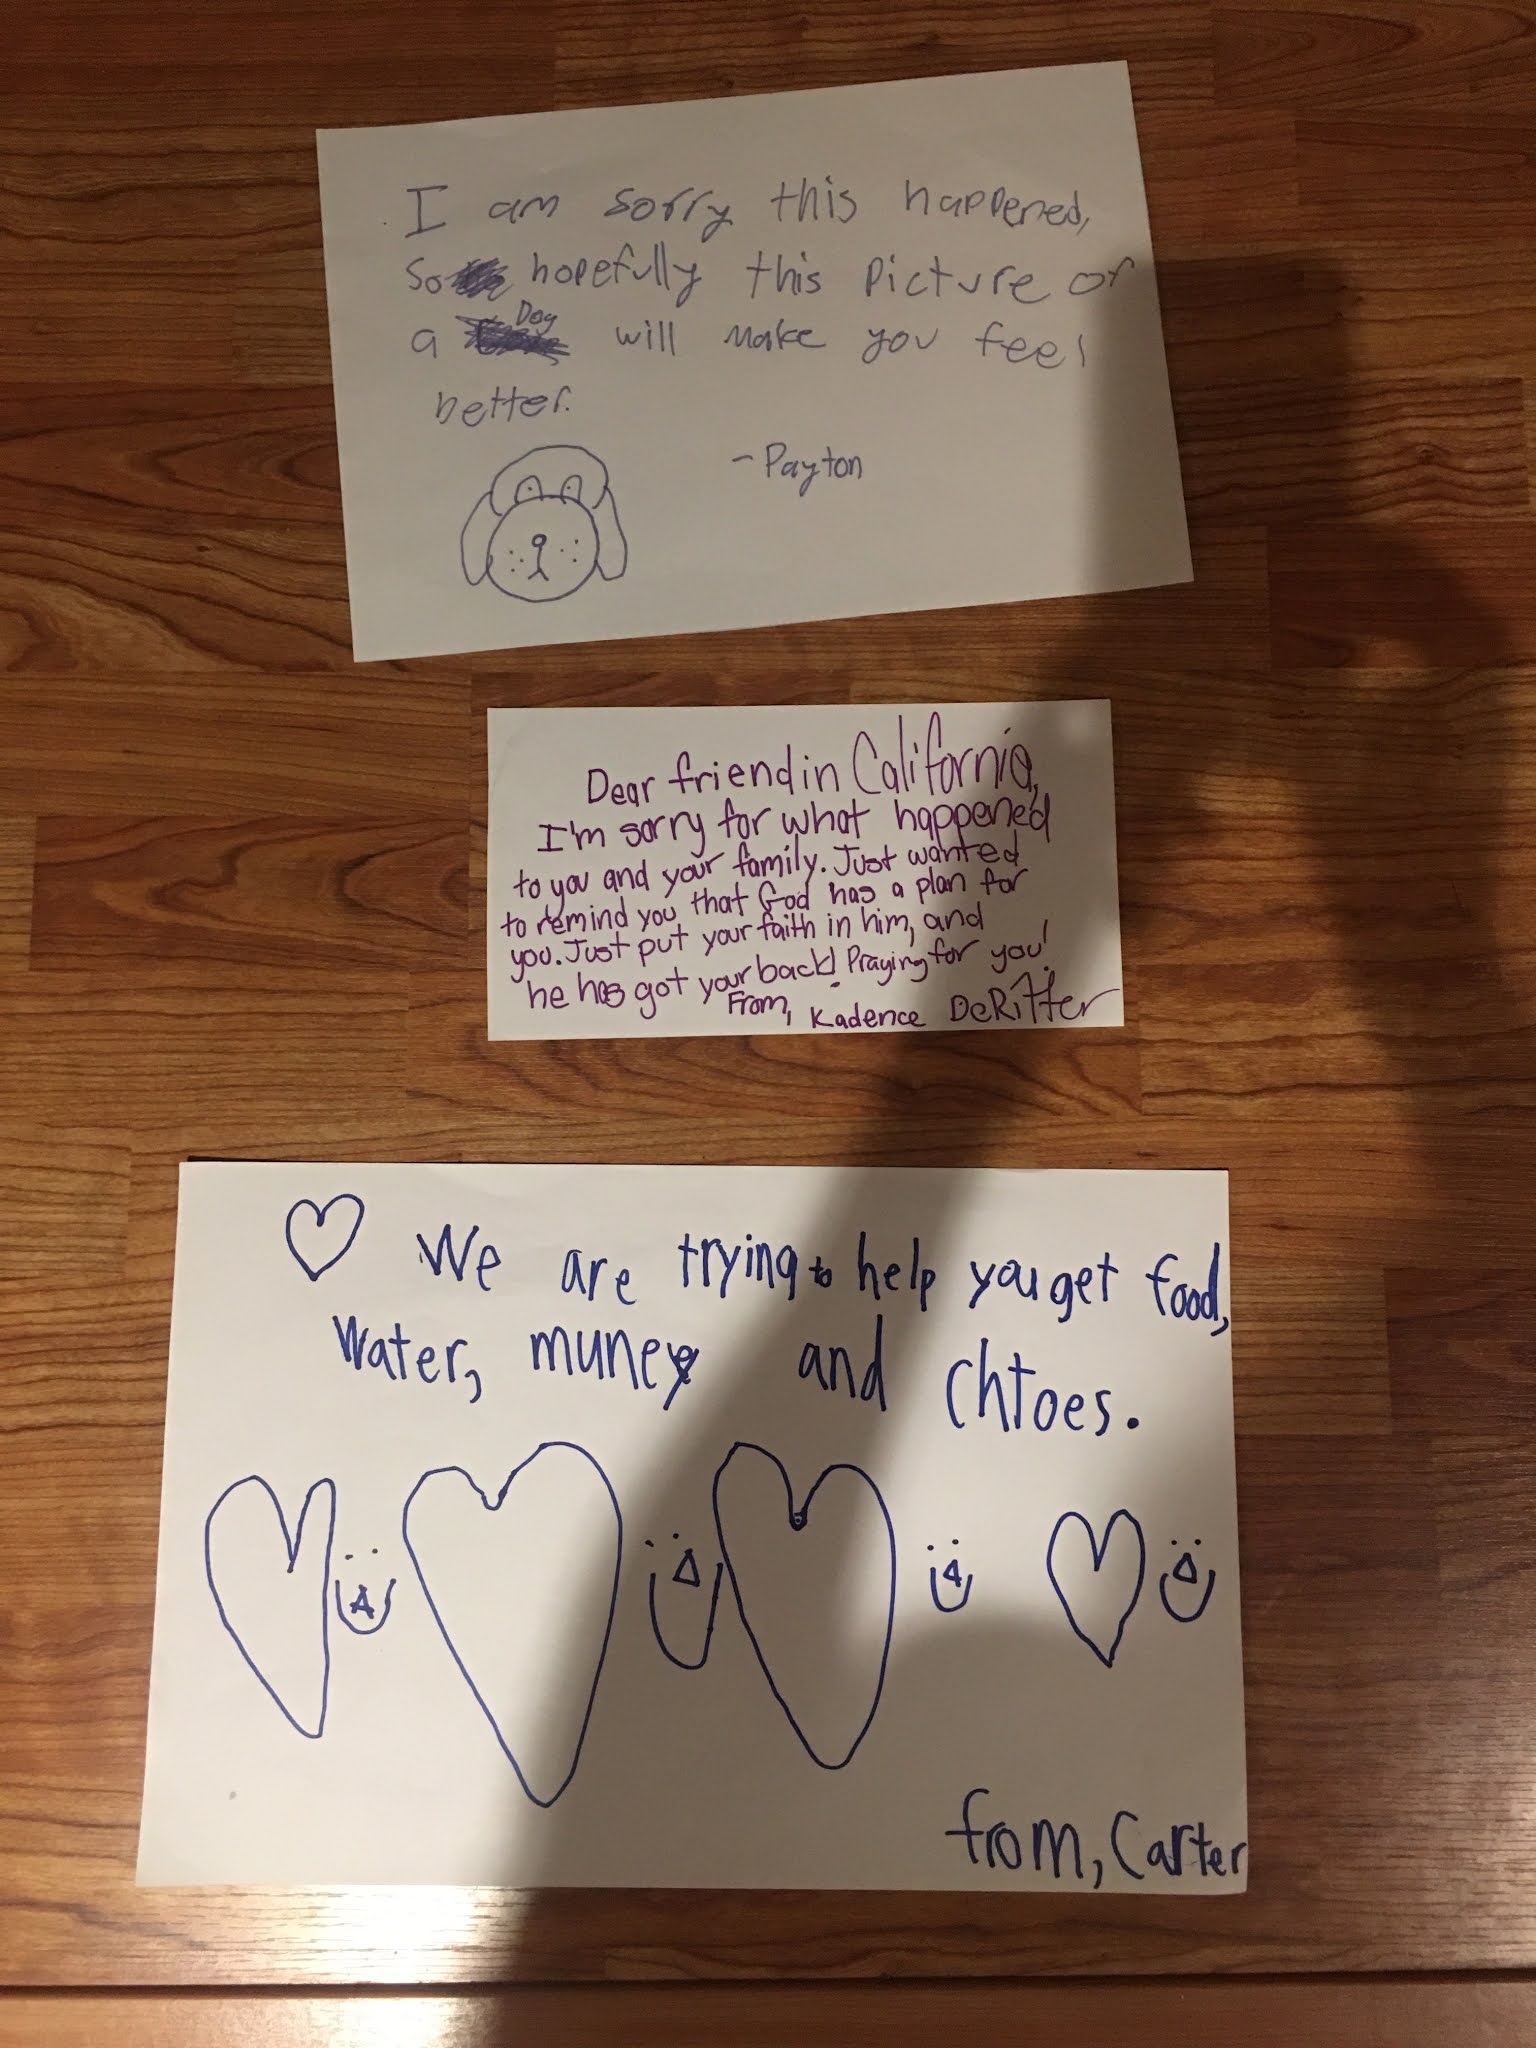 I am sorry this happened,
So hopefully this picture of
a Dog will make you feel
better.
- Payton
Dear friend in California,
I'm sorry for what happened
to you and your family. Just wanted
to remind you that God has a plan for
you. Just put your faith in him, and
he has got your back! Praying for you!
From, Kadence DeRitter
We are trying to help you get food,
Water, muney and chtoes.
from, Carter